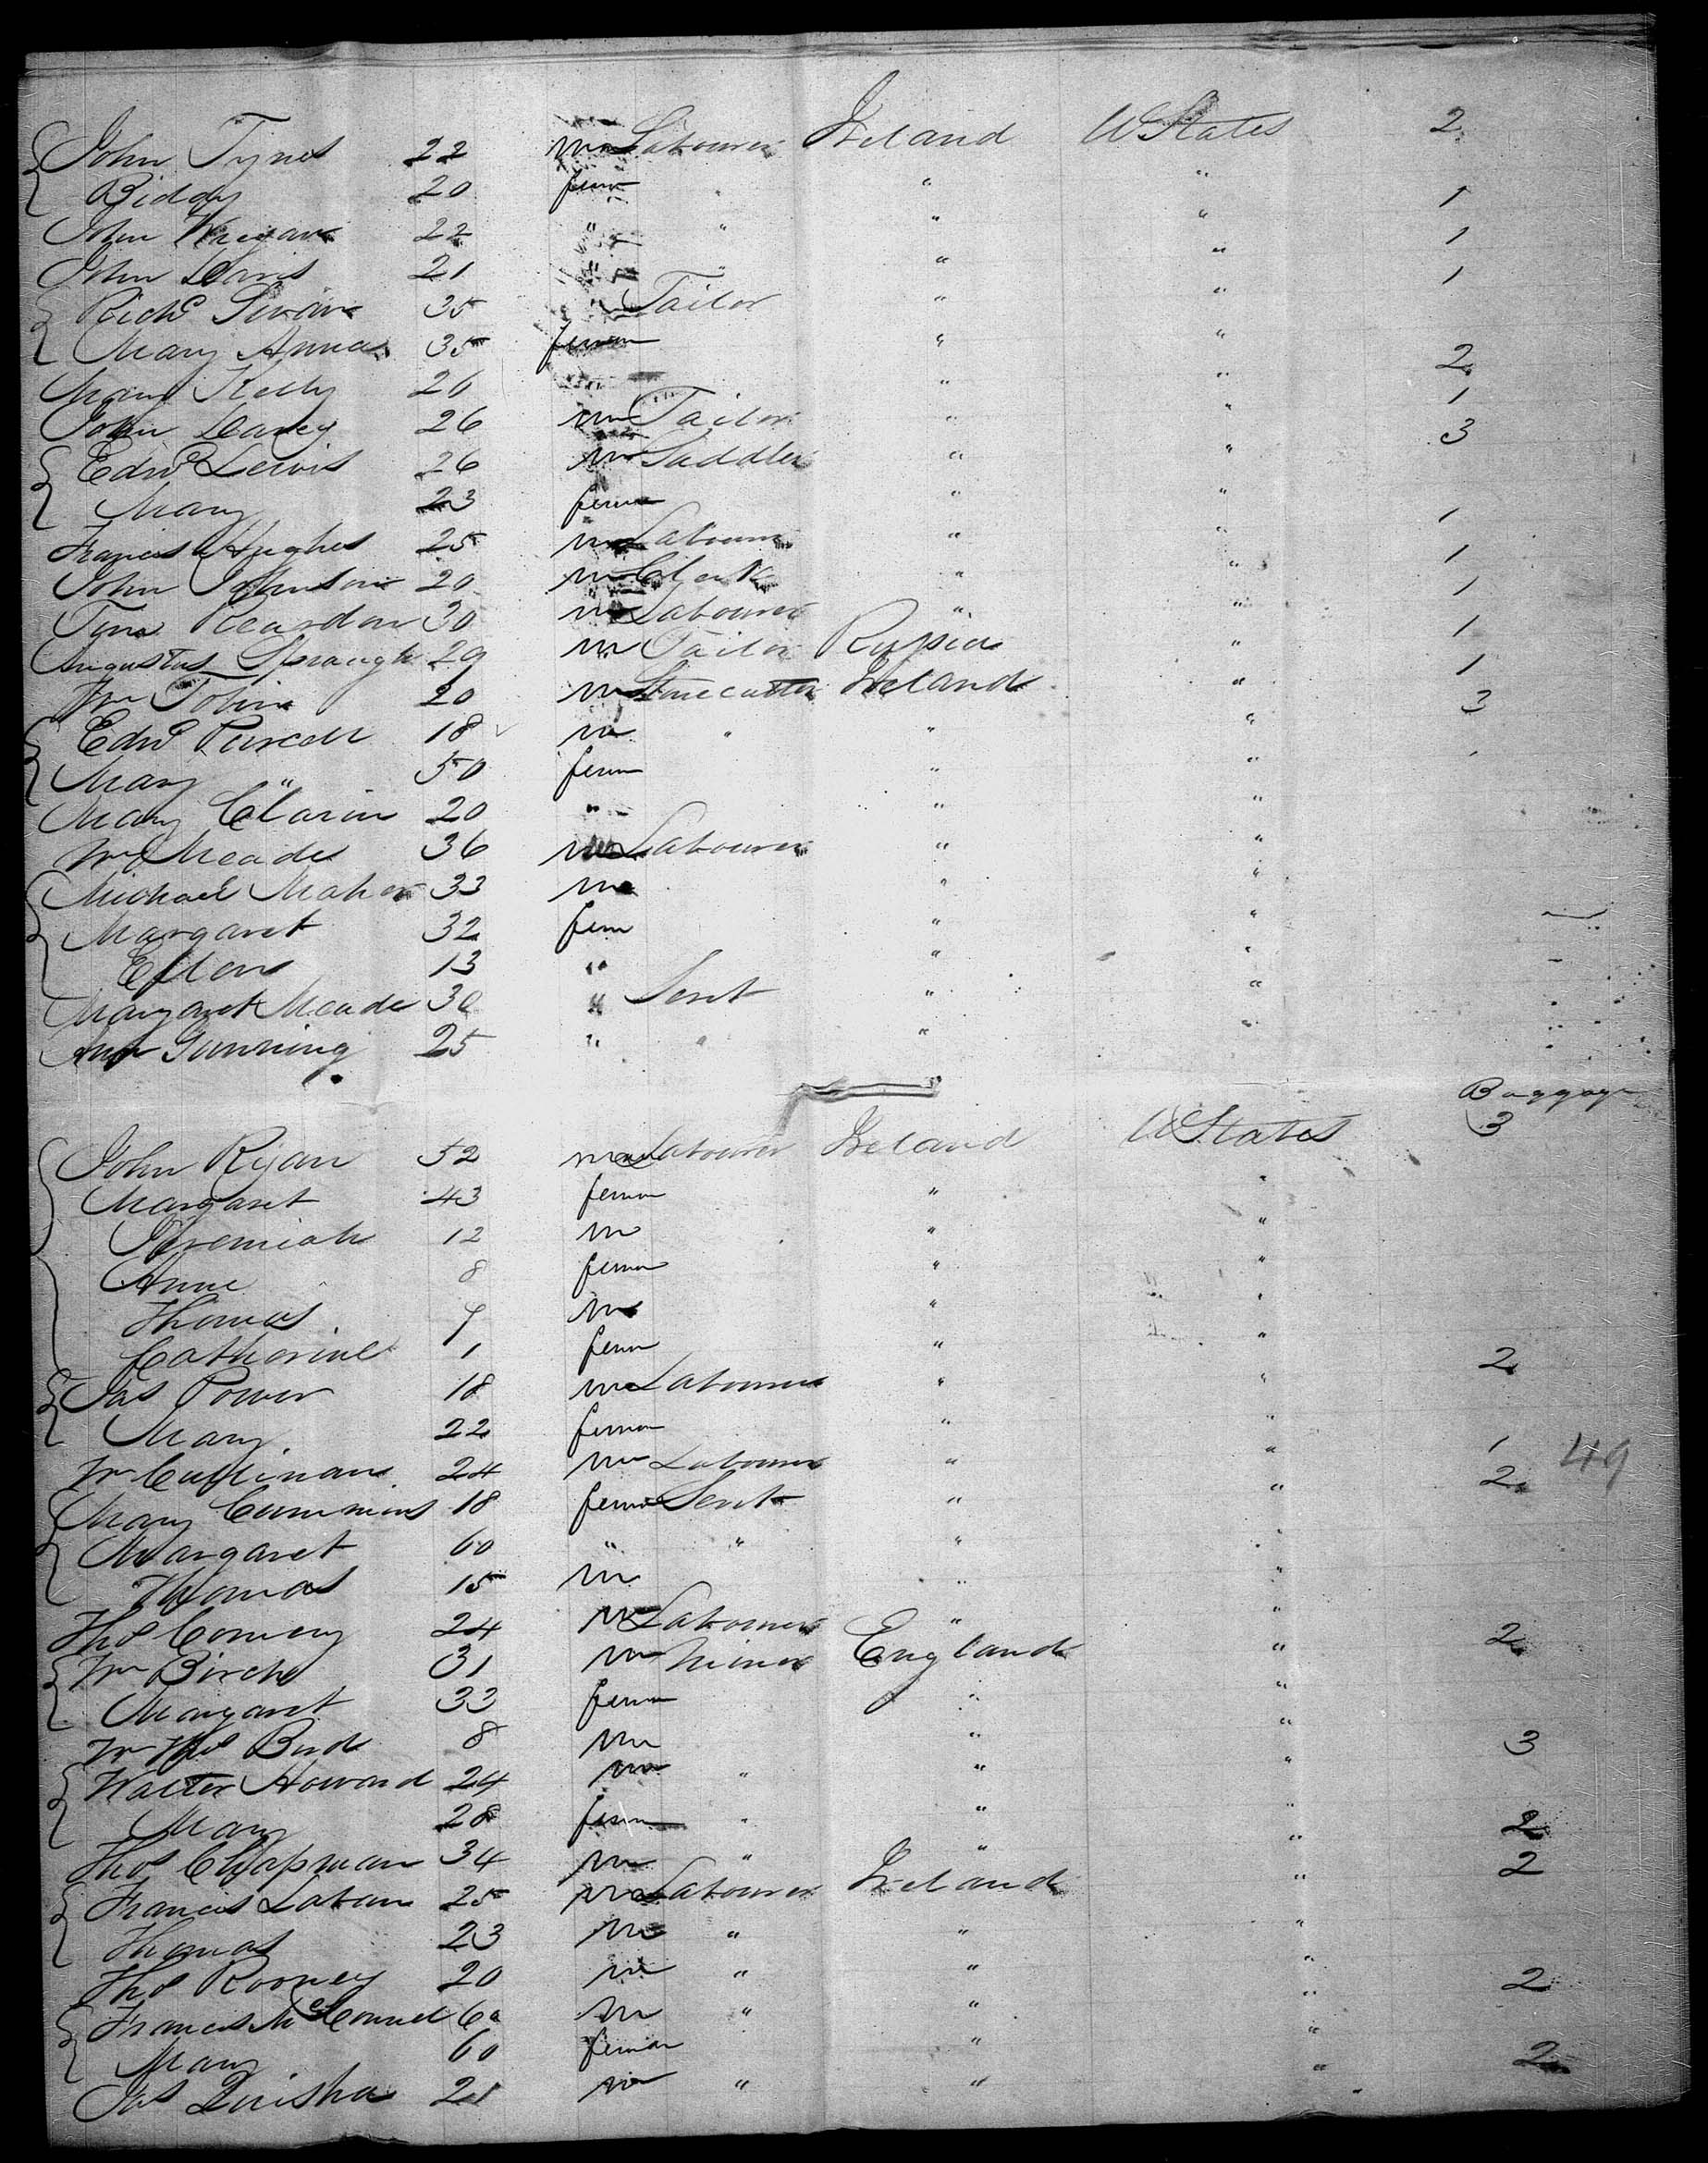 John Tynes 22 m Labourer Ireland U States 2
Biddy 20 fem " " "
John Whelan 22 " " " " 1
John Davis 21 " " " " 1
Richd Swan 35 " Tailor " " 1
Mary Anna 35 fem " "
Mary Kelly 26 " " " 2
John Carey 26 m Tailor " " 1
Edwd Lewis 26 m Saddler " " 3
Mary 23 fem " "
Francis Hughes 25 m Labourer " " 1
John Johnson 20 m Clerk " " 1
Tim Reardon 30 m Labourer " " 1
Augustus 29 m Tailor Russia " 1
Wm Tobin 20 m Stonecutter Ireland " 1
Edwd Purcell 18 m " " " 3
Mary " 50 fem " "
Mary 20 " " "
Wm Meade 36 m Labourer " "
Michael Maher 33 m " "
Margaret 32 fem " "
Ellen 13 " " "
Margaret Meade 30 " Sert " "
Ann Gunning 25 " " " "
Baggage
John Ryan 52 m Labourer Ireland U States 3
Margaret 43 fem " "
Jeremiah 12 m " "
Anne 8 fem " "
Thomas 9 m " "
Catherine 1 fem " "
Jas Power 18 m Labourer " " 2
Mary 22 fem " "
Wm Cullinan 24 m Labourer " " 1 49
Mary Cummins 18 fem Sert " " 2
Margaret 60 " " " "
Thomas 15 m " "
Thos Comery 24 m Labourer " "
Wm Birch 31 m Miner England " 2
Margaret 33 fem " "
Wm Thos Bird 8 m " "
Walter Howard 24 m " " " 3
Mary 28 fem " " "
Thos Chapman 34 m " " " 2
Francis Laban 25 m Labourer Ireland " 2
Thomas 23 m " " "
Thos Rooney 20 m " " "
Francis McConnel 60 m " " " 2
Mary 60 fem " "
Jas 21 m " " " 2